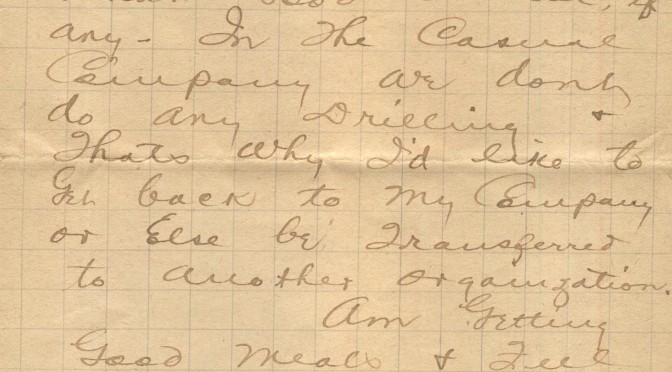 if
any - In The Casual
Company we dont
do any Drilling &
Thats Why I'd like to
Get back to My Company
or Else be Transferred
to another organization.
Am Getting
Good Meals & Feel